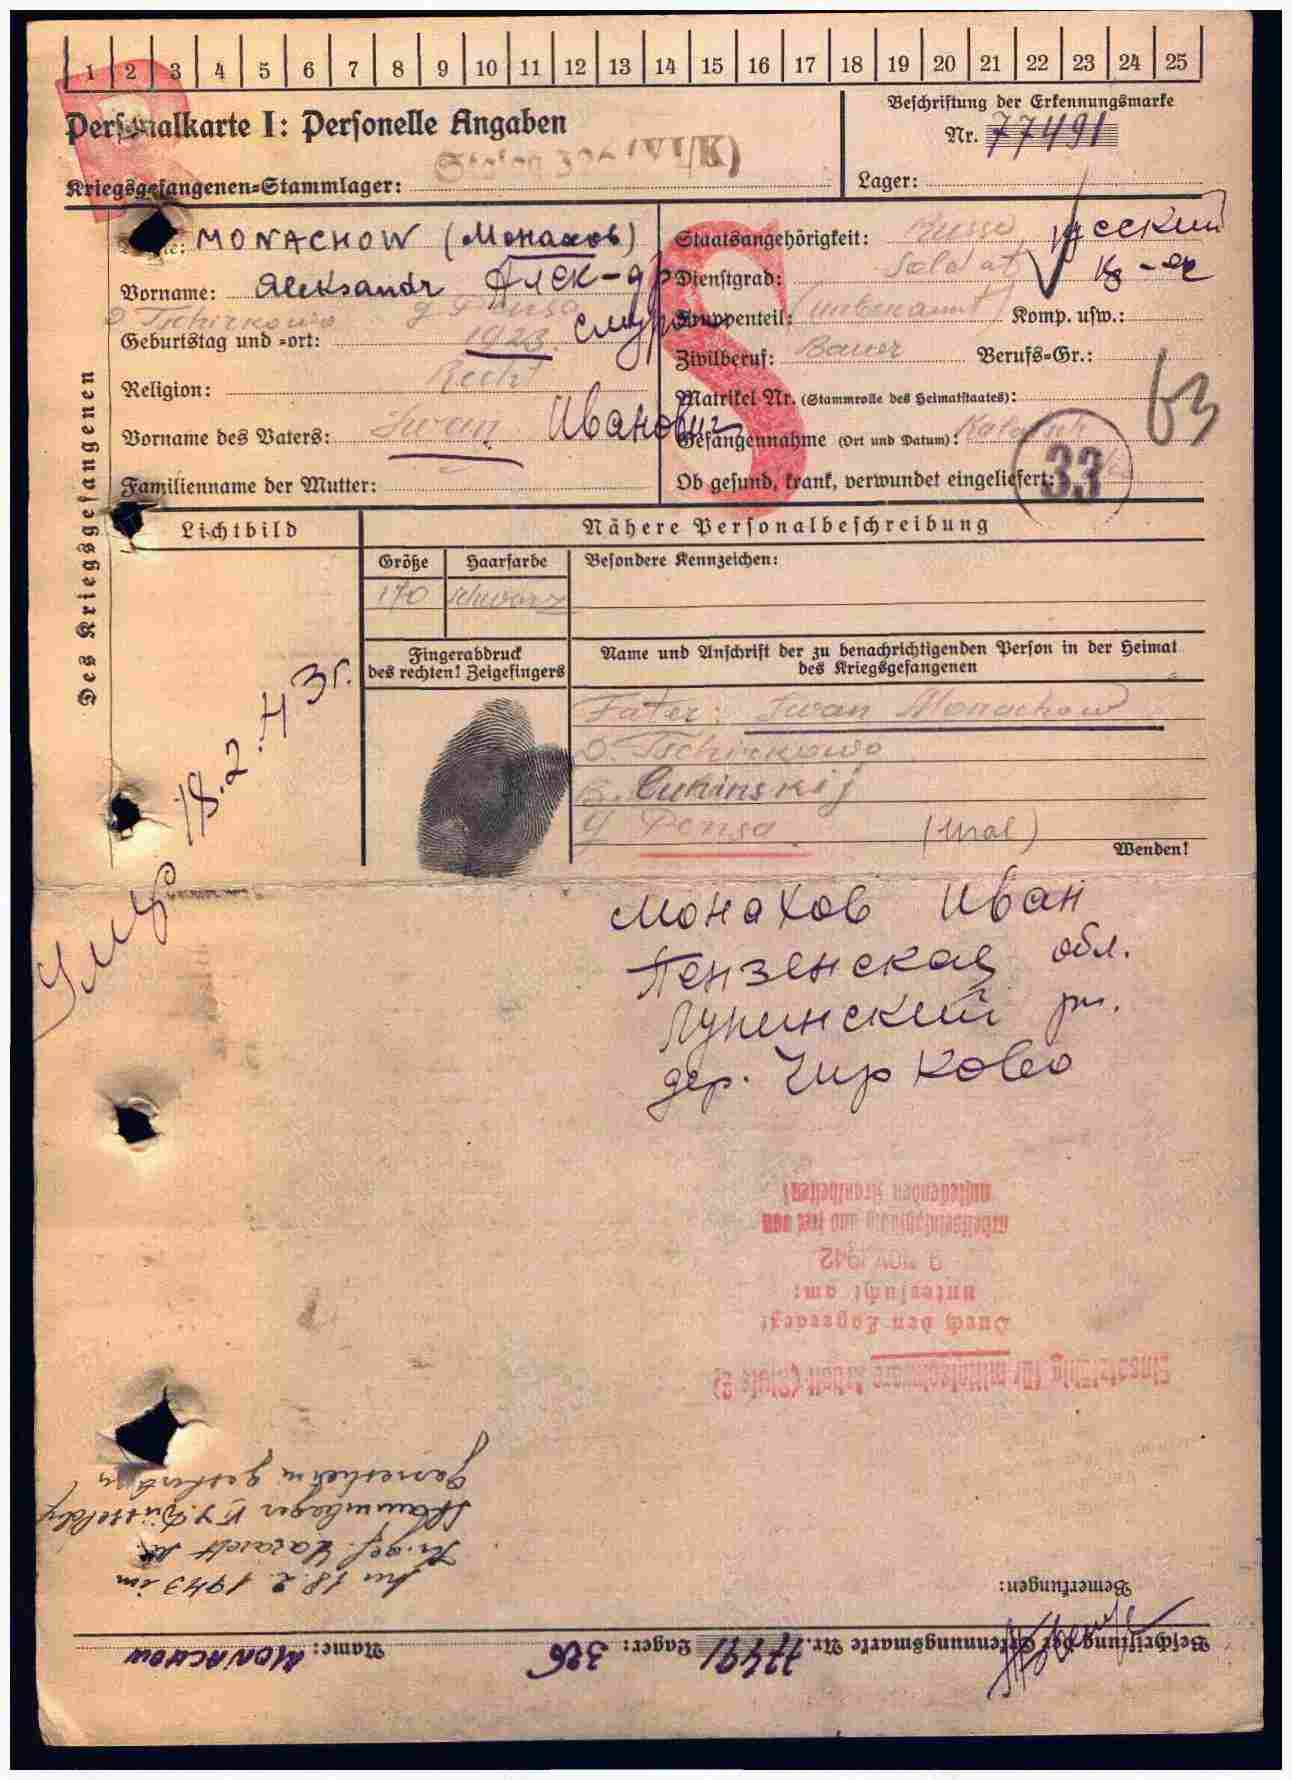 1 2 3 4 5 6 7 8 9 10 11 12 13 14 15 16 17 18 19 20 21 22 23 24 25
Personalkarte I: Personelle Angaben
Beschriftung der Erkennungsmarke
Nr. 77491
Kriegsgefangenen=Stammlager: Stalag 326 (VI/K)
Lager:
Des Kriegsgefangenen
MONACHOW (Монахов)
Vorname: Aleksandr Алек-др
D Tschirkowo g Pensa
Geburtstag und =ort: 1923.
Religion:
Vorname des Vaters: Iwan Иванович
Familienname der Mutter:
Staatsangehörigkeit: Russe русский
Dienstgrad: Soldat
Truppenteil: (unbekannt) Komp. usw.:
Zivilberuf: Bauer Berufs=Gr.:
Matrikel Nr. (Stammrolle des Heimatstaates):
Gefangennahme (Ort und Datum):
Ob gesund, krank, verwundet eingeliefert:
63
33
Lichtbild
Nähere Personalbeschreibung
Größe Haarfarbe Besondere Kennzeichen:
170 schwarz
Fingerabdruck
des rechten! Zeigefingers
Name und Anschrift der zu benachrichtigenden Person in der Heimat
des Kriegsgefangenen
Fater: Iwan Monachow
D. Tschirkowo
g Pensa (Ural)
Wenden!
18.2.43г.
Монахов Иван
Пензенская обл.
Лунинский рн.
дер. Чирково
Einsatzfähig für mittelschwere Arbeit (Stufe 2)
Durch den Lagerarzt
untersucht am:
9 NOV 1942
arbeitseinsatzfähig und frei von
ansteckenden Krankheiten!
Beschriftung der Erkennungsmarke Nr. 77491 Lager: 326 Name: MONACHOW
Bemerkungen:
Am 18.2.1943 im
Kr.gef. Lazarett
Stammlager VI J
gestorben